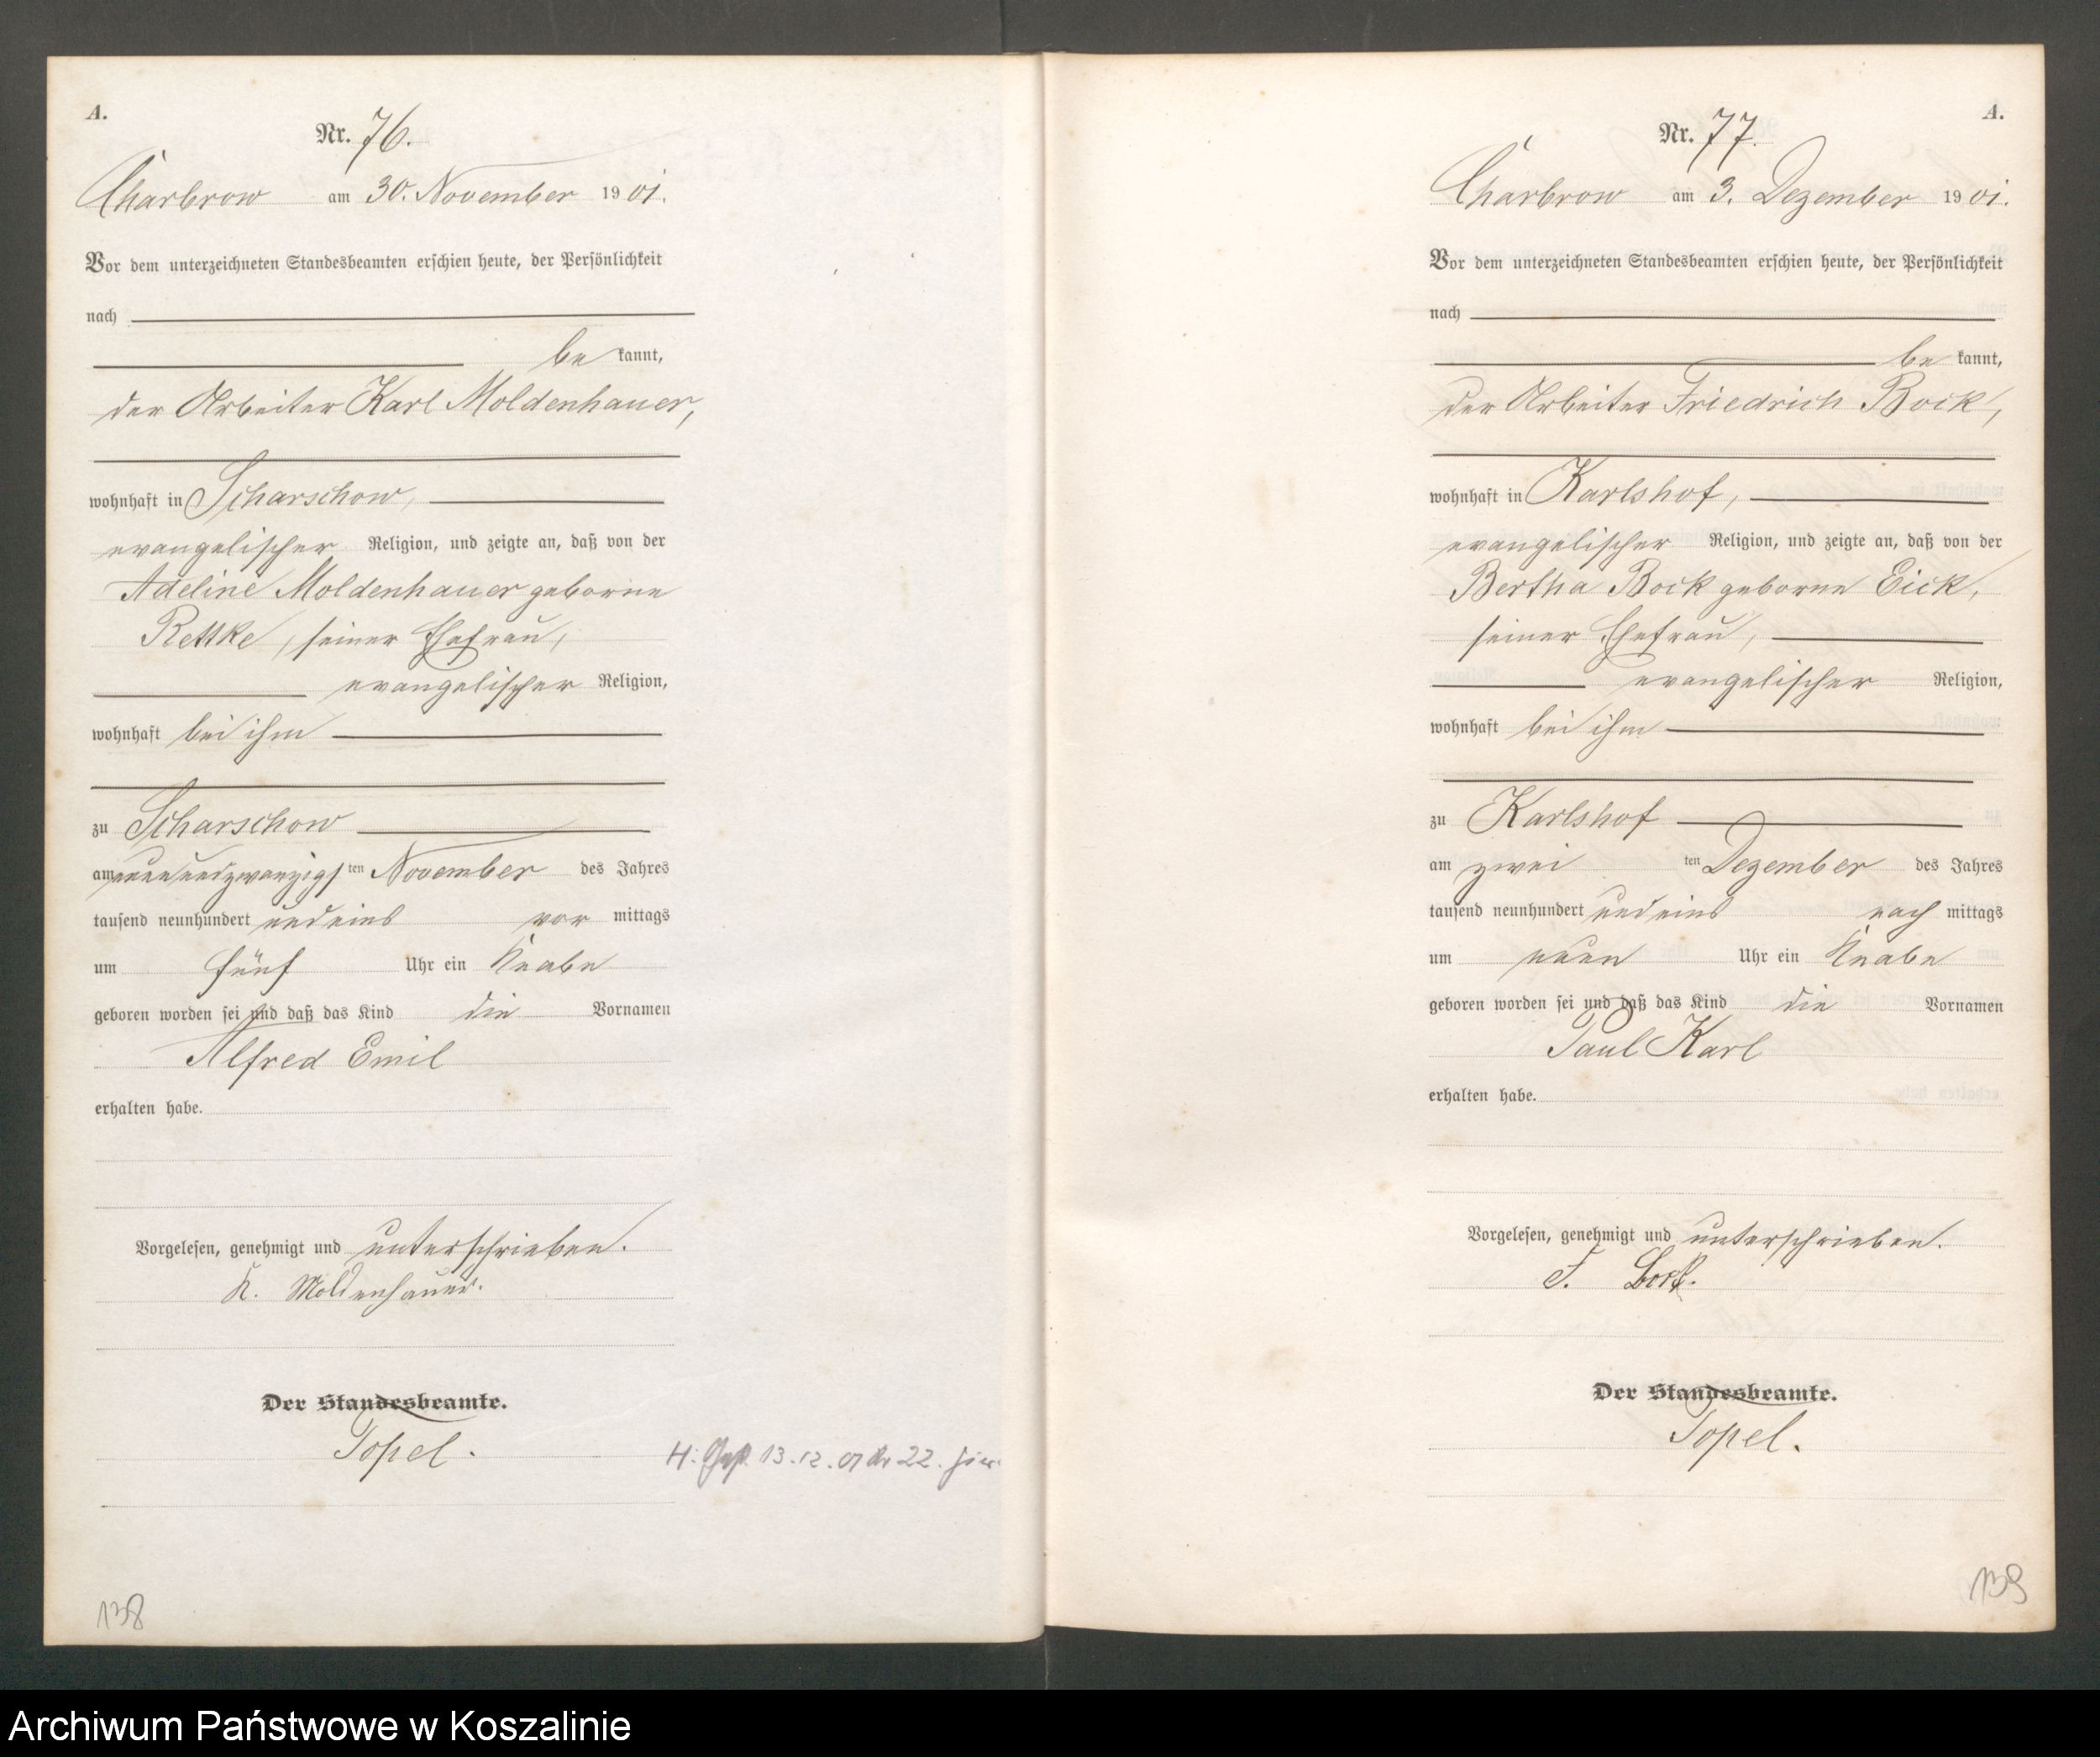 A.
Nr. 76.
Charbrow am 30. November 1901.
Vor dem unterzeichneten Standesbeamten erschien heute, der Persönlichkeit
nach
be kannt,
der Arbeiter Karl Moldenhauer,
wohnhaft in Scharschow,
evangelischer Religion, und zeigte an, daß von der
Adeline Moldenhauer geborne
Rettke, seiner Ehefrau,
evangelischer Religion,
wohnhaft bei ihm
zu Scharschow
am neunundzwanzigsten November des Jahres
tausend neunhundert und eins vor mittags
um fünf Uhr ein Knabe
geboren worden sei und daß das Kind die Vornamen
Alfred Emil
erhalten habe.
Vorgelesen, genehmigt und unterschrieben.
K. Moldenhauer.
Der Standesbeamte.
Topel.
13.12. 22. hier
138
A.
Nr. 77.
Charbrow am 3. Dezember 1901.
Vor dem unterzeichneten Standesbeamten erschien heute, der Persönlichkeit
nach
be kannt,
der Arbeiter Friedrich Bock,
wohnhaft in Karlshof,
evangelischer Religion, und zeigte an, daß von der
Bertha Bock geborne Eick,
seiner Ehefrau,
evangelischer Religion,
wohnhaft bei ihm
zu Karlshof
am zwei ten Dezember des Jahres
tausend neunhundert und eins nach mittags
um neun Uhr ein Knabe
geboren worden sei und daß das Kind die Vornamen
Paul Karl
erhalten habe.
Vorgelesen, genehmigt und unterschrieben.
F. Bock.
Der Standesbeamte.
Topel.
139
Archiwum Państwowe w Koszalinie